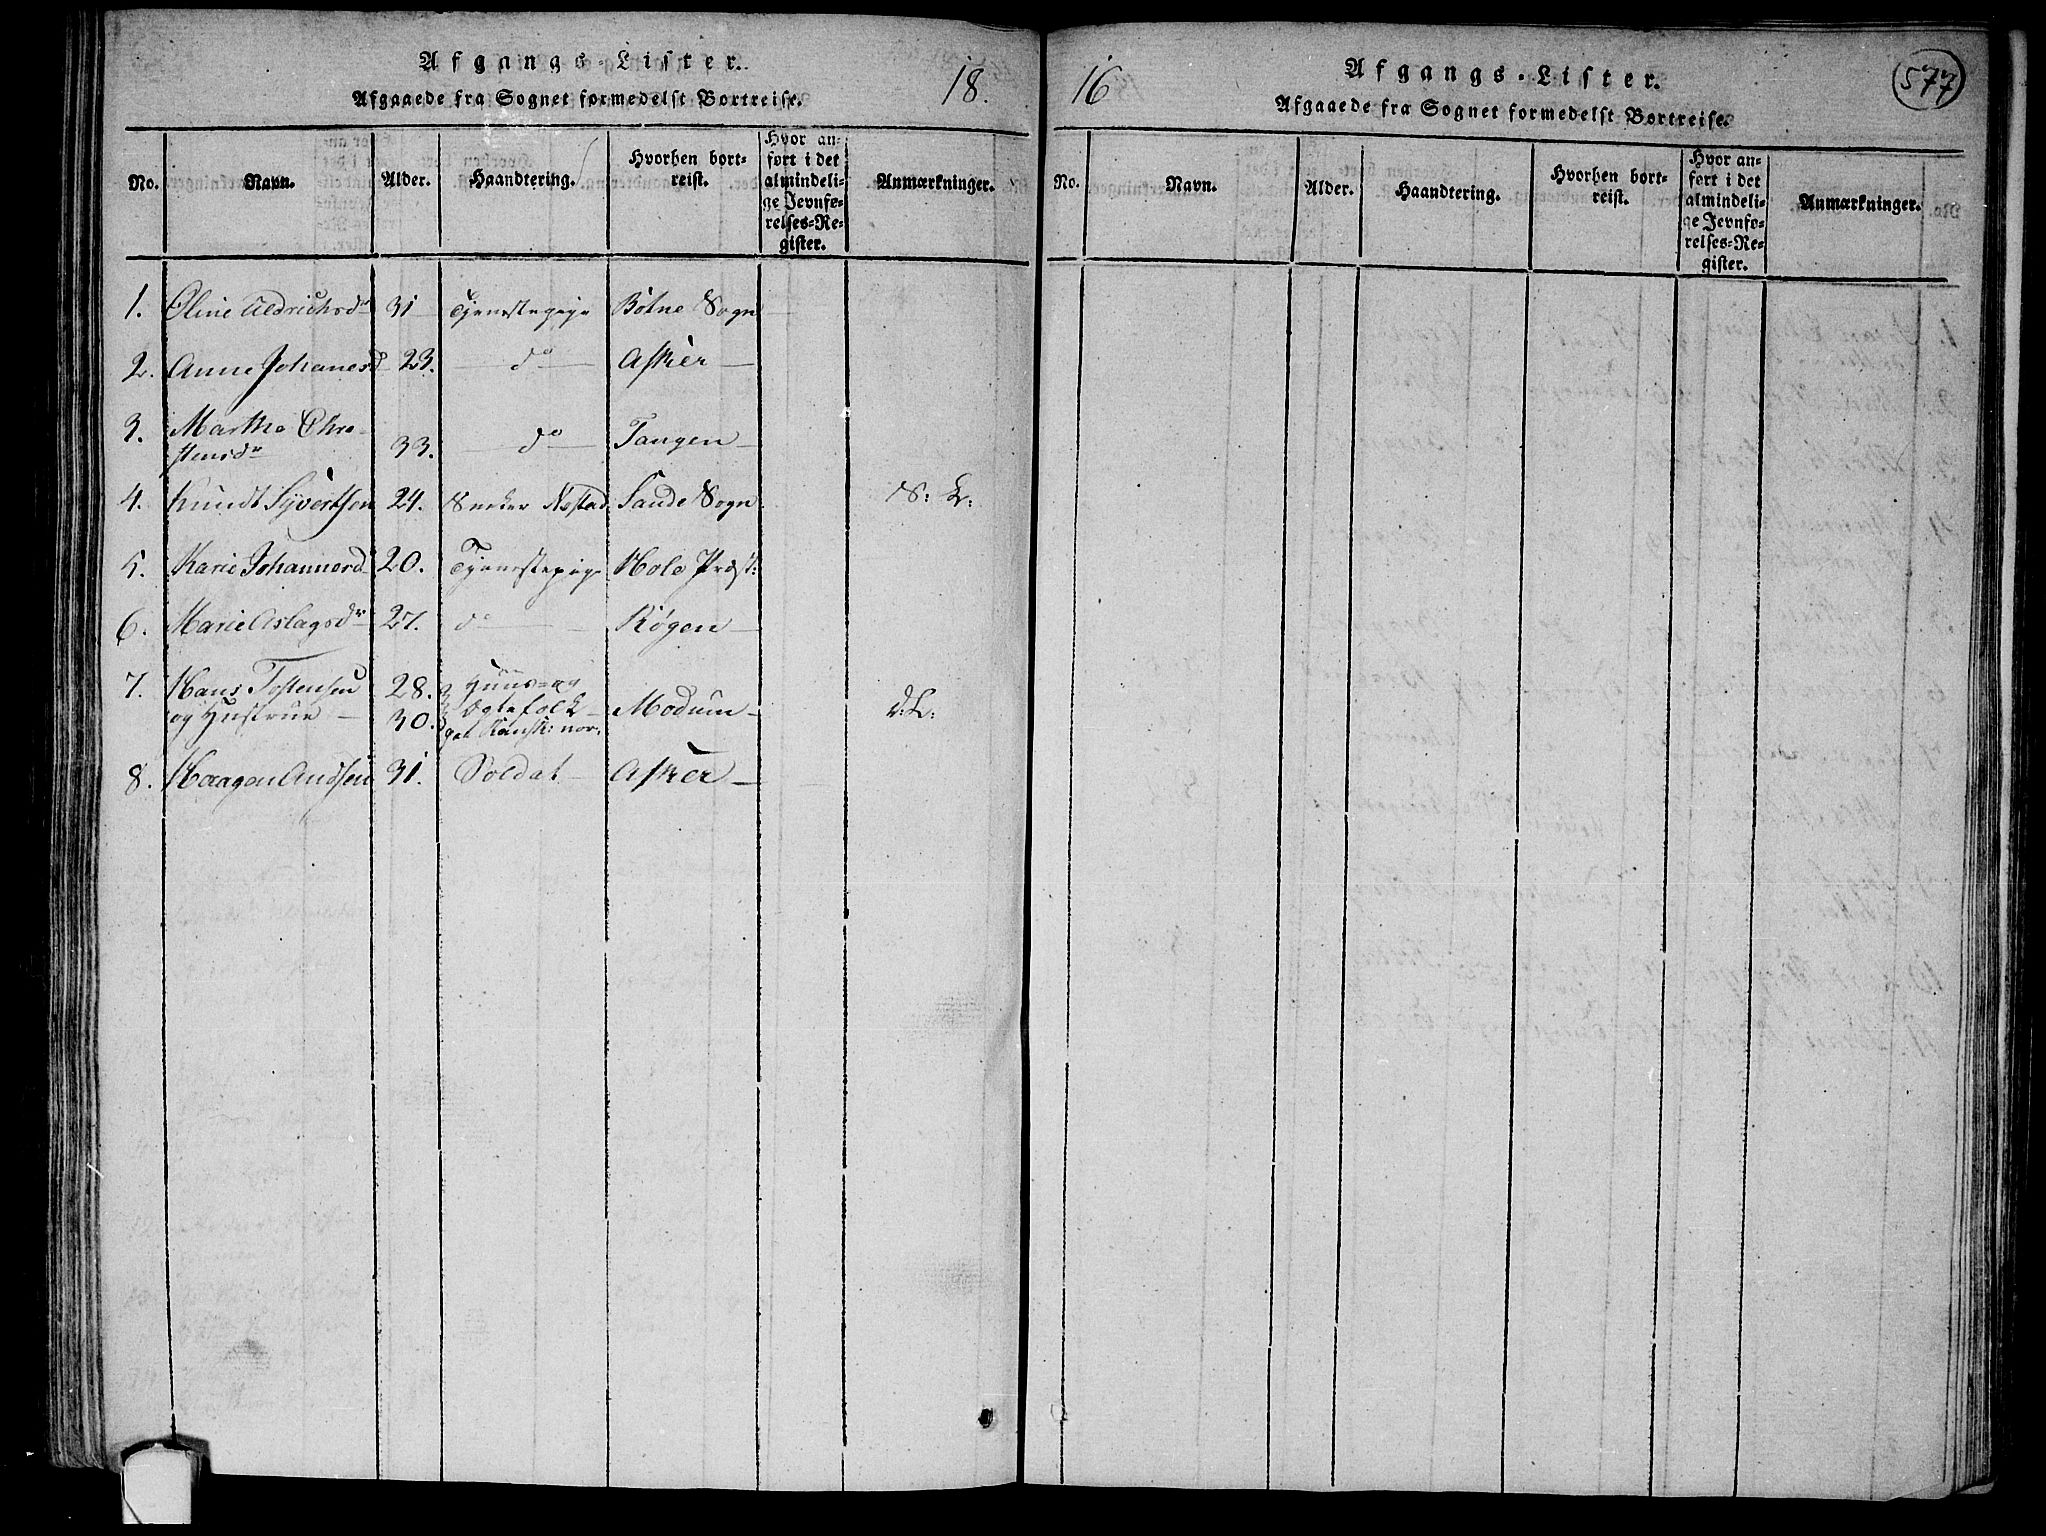 Afgangs-Lister.
Afgaaede fra Sognet formedelst Bortreise.
18.
No.
Navn.
Alder.
Haandtering.
Hvorhen bort-
reist.
Hvor an-
ført i det
almindeli-
ge Jevnfø-
relses-Re-
gister.
Anmærkninger.
1. Oline Aldrichsdr 31 Tjenestepige Botne Sogn
2. Anne Johanesd 23. do Asker
3. Marthe Chri-
stensdr 33. do Tangen
4. Knudt Syvertsen 24. Nøstad Sande Sogn S:
5. Karie Johannesd 20. Tjenestepige Hole Præst:
6. Marie Aslagsdr 27. do Røgen
7. Hans Tostensen 28. Huus- og
og Hustrue 30. Ægtefolk Modum
8. Haagen Andsen 31. Soldat Asker
16
Afgangs-Lister.
Afgaaede fra Sognet formedelst Bortreise.
577
No.
Navn.
Alder.
Haandtering.
Hvorhen bort-
reist.
Hvor an-
ført i det
almindeli-
ge Jevnfø-
relses-Re-
gister.
Anmærkninger.